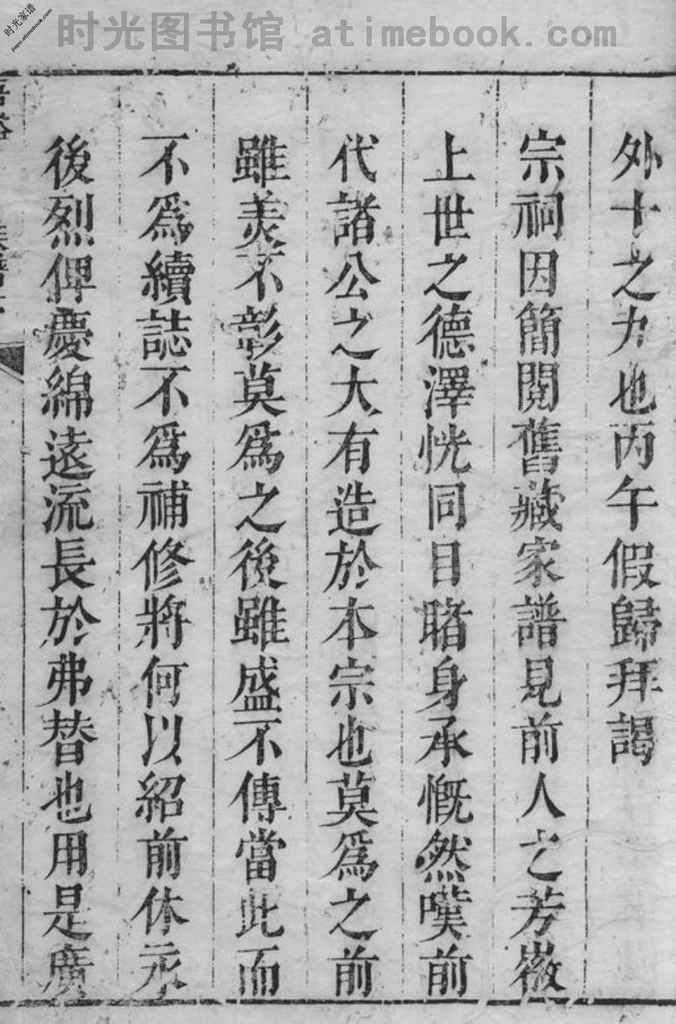 时光图书馆 atimebook.com
时光家谱
www.atimebook.com
外十之九也丙午假歸拜謁
宗祠因簡閱舊藏家譜見前人之芳徽
上世之德澤恍同目睹身承慨然嘆前
代諸公之大有造於本宗也莫爲之前
雖美不彰莫爲之後雖盛不傳當此而
不爲續誌不爲補修將何以紹前休永
後烈俾慶綿遠流長於弗替也用是廣